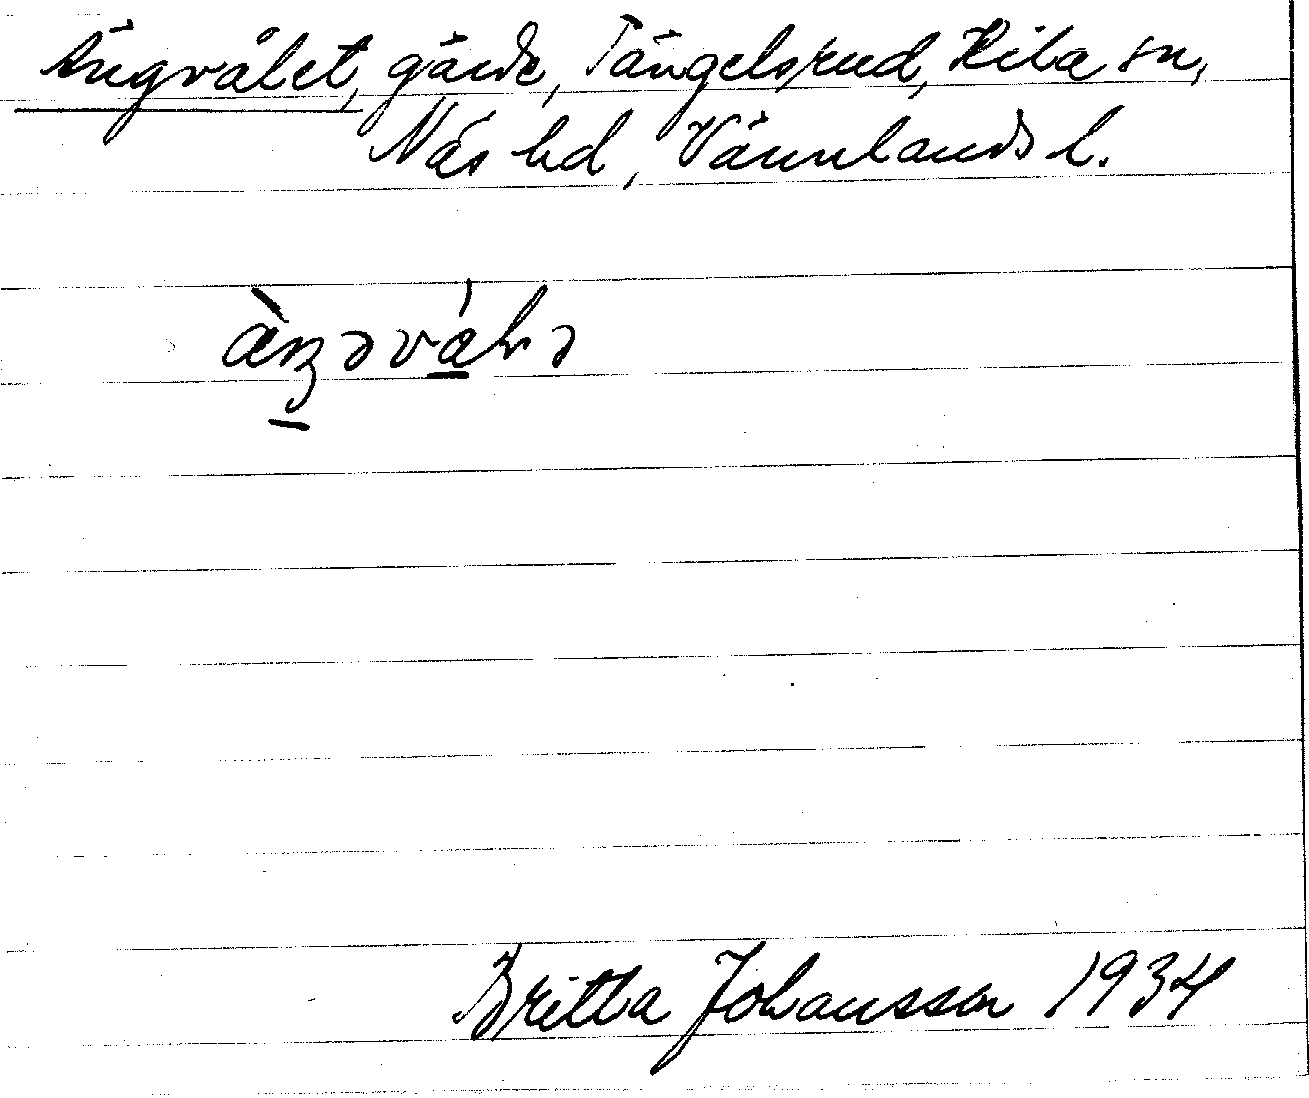 Ängvålet, gärde, Tängelsrud, Kila sn,
Näs hd, Värmlands l.
Britta Johansson 1934